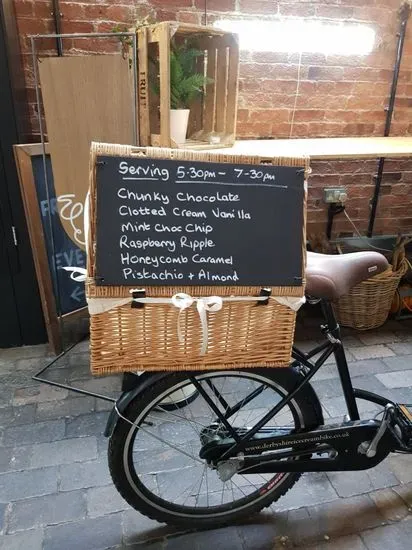 FRUIT
Serving 5.30pm - 7-30pm
Chunky Chocolate
Clotted Cream Vanilla
Mint Choc Chip
Raspberry Ripple
Honeycomb Caramel
Pistachio + Almond
www.derbyshireicecreambike.co.uk